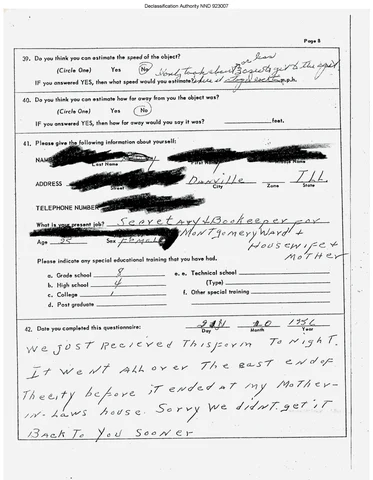 Declassification Authority NND 923007
Page 8
39. Do you think you can estimate the speed of the object?
(Circle One) Yes No
IF you answered YES, then what speed would you estimate?
40. Do you think you can estimate how far away from you the object was?
(Circle One) Yes No
IF you answered YES, then how far away would you say it was? feet.
41. Please give the following information about yourself:
NAME
Last Name First Name Middle Name
ADDRESS Danville ILL
Street City Zone State
TELEPHONE NUMBER
What is your present job? Secretary & Bookkeeper for
Montgomery Ward &
Age Sex Female Housewife &
Mother
Please indicate any special educational training that you have had.
a. Grade school 8 e. e. Technical school
b. High school 4 (Type)
c. College 1 f. Other special training
d. Post graduate
42. Date you completed this questionnaire:
Day Month Year
We Just Recieved This form To Night.
It Went All over The East end of
The city before it ended at my Mother-
in-Laws house. Sorry We didnt get it
Back To You Sooner